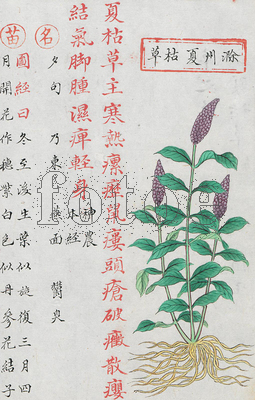 滁州夏枯草
夏枯草主寒熱瘰癧鼠瘻頭瘡破癥散癭
結氣脚腫濕痺輕身神農本經
名夕句乃東燕面鬱臭
苗圖經曰冬至後生葉似旋復三月四
月開花作穗紫白色似丹參花結子
fotoe